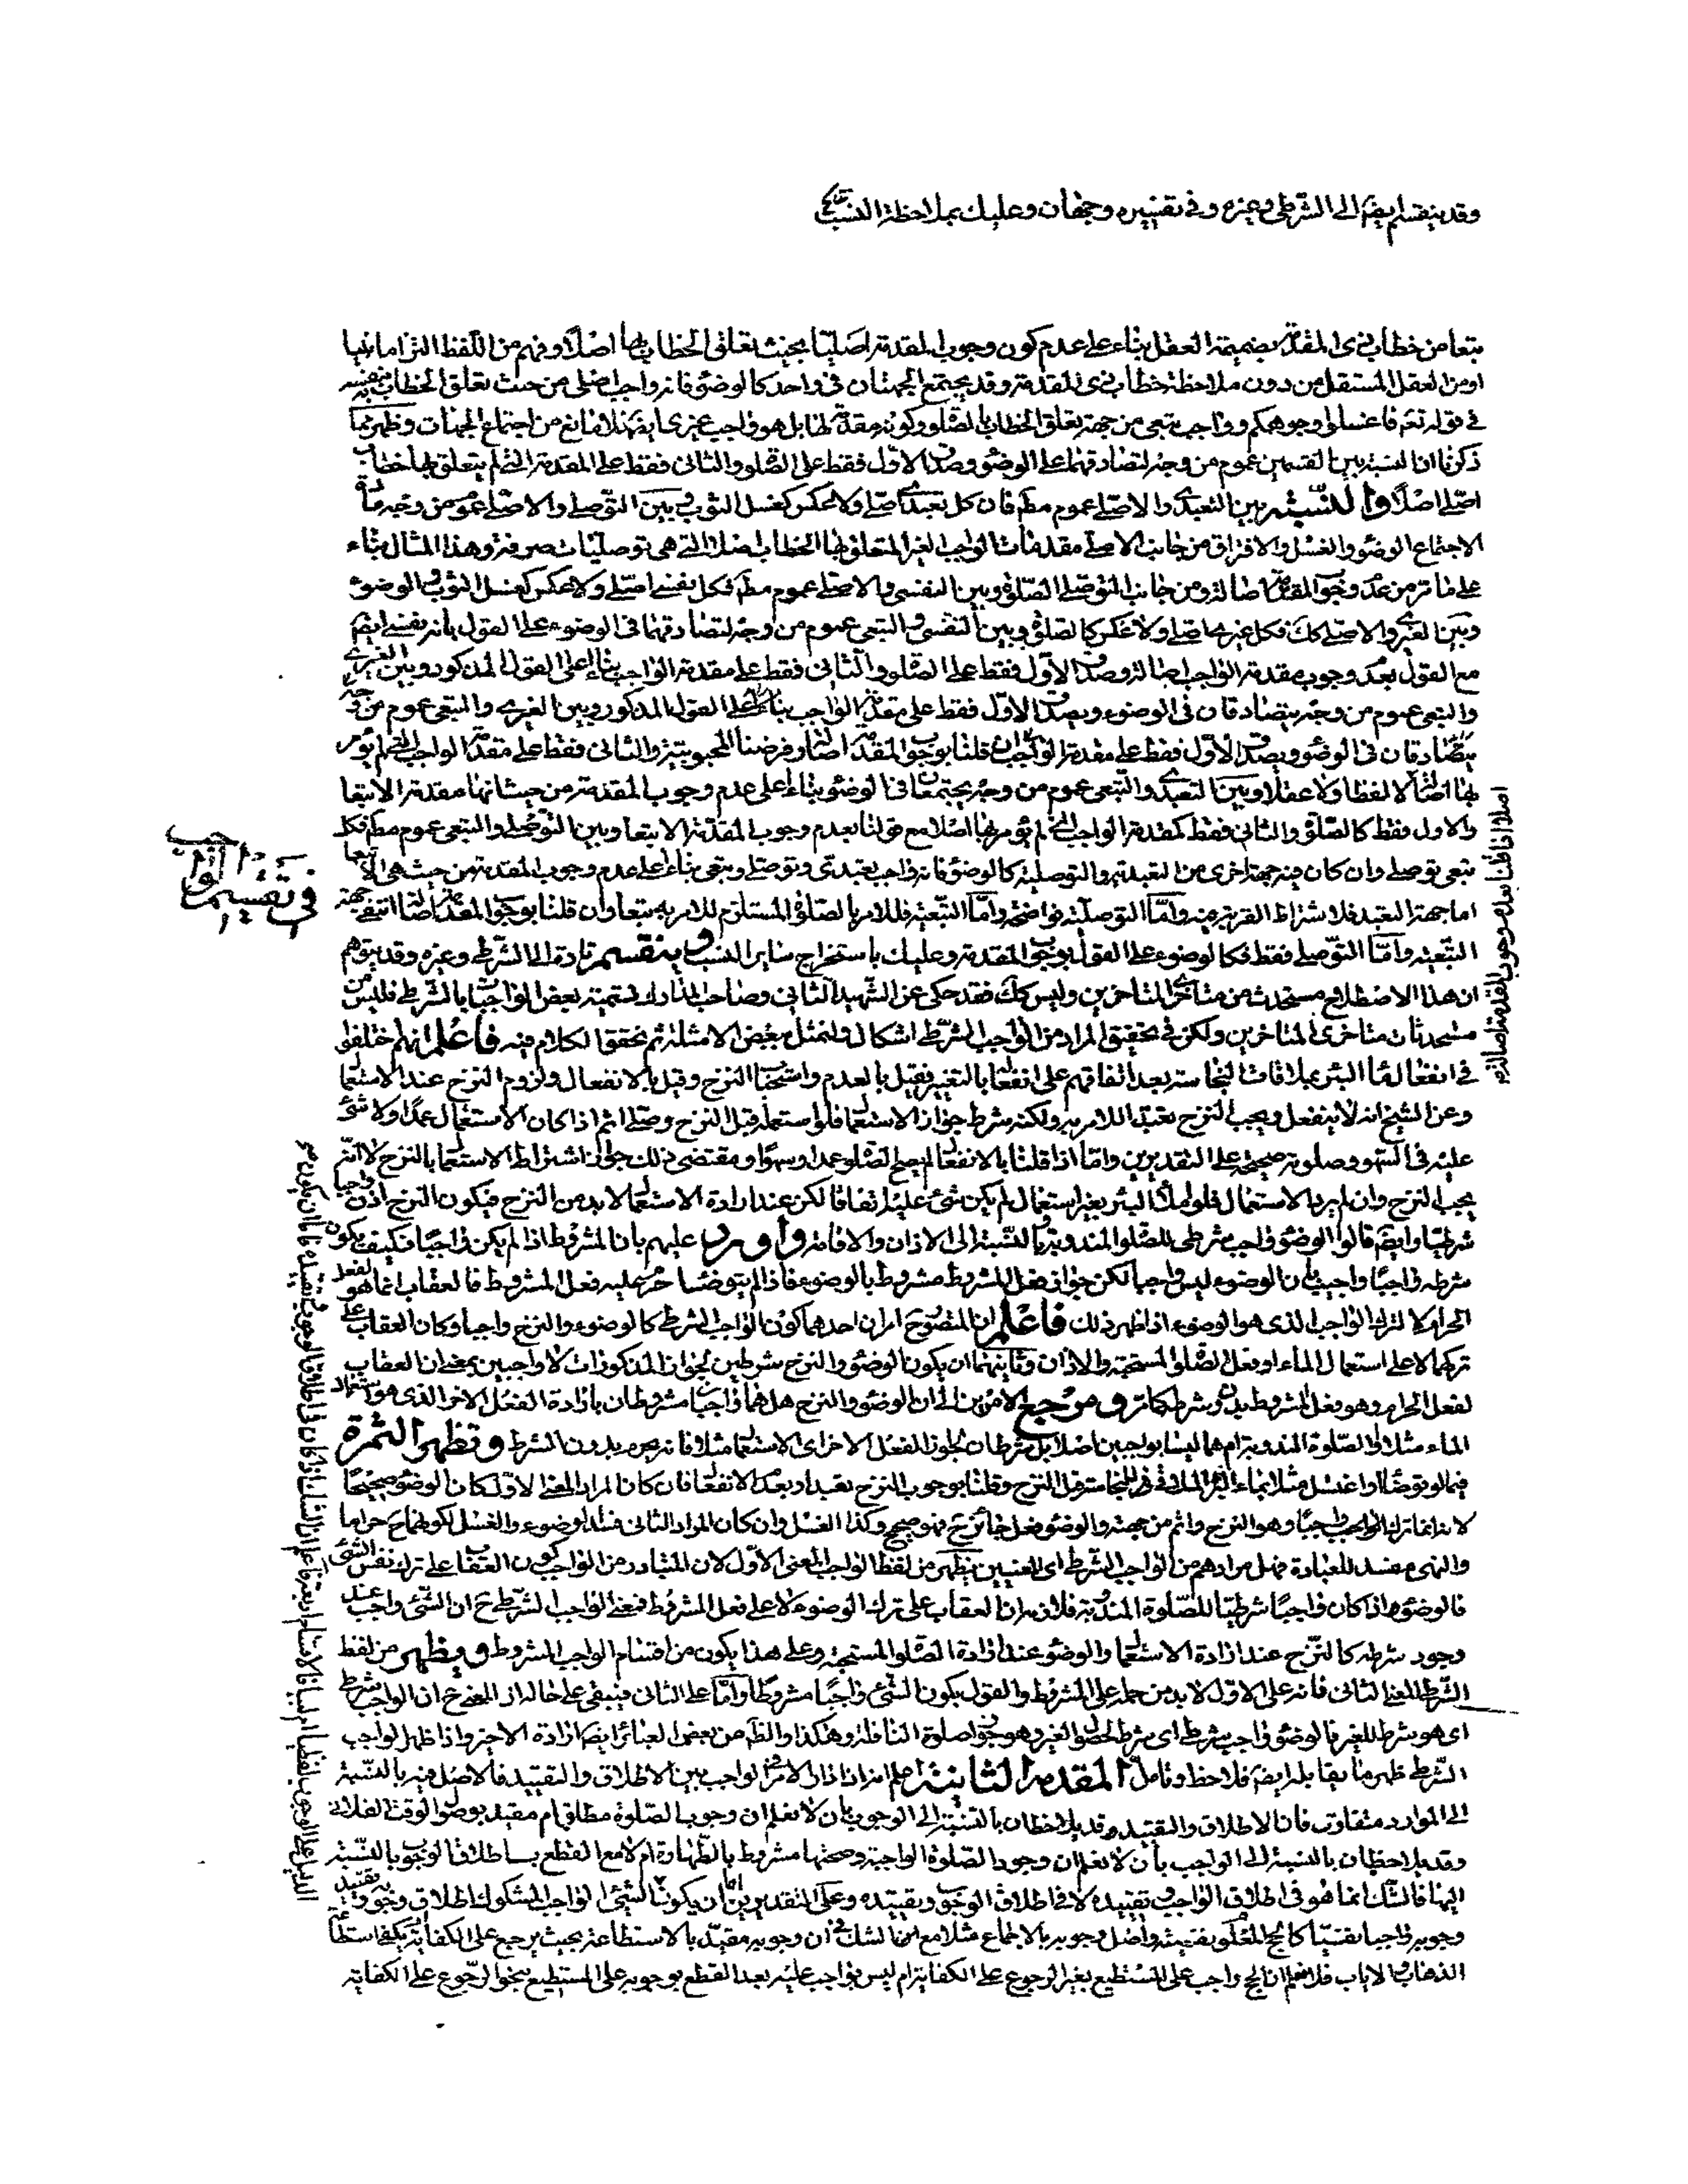 وقد ينقسم ايضا الى الشرطى وغيره وفى تفسيره وجهان وعليك بملاحظة النسب
تبعا من خطاب ذى المقدمة بضميمة العقل بناء على عدم كون وجوب المقدمة اصليا بحيث تعلق الخطاب بها اصلا وفهم من اللفظ التزاما
او من العقل المستقل من دون ملاحظة خطاب ذى المقدمة وقد يجتمع الجهتان فى واحد كالوضوء فانه واجب اصلى من حيث تعلق الخطاب بنفسه
فى قوله تعم فاغسلوا وجوهكم وواجب تبعى من جهة تعلق الخطاب بالصلوة وكونه مقدمة لها بل هو واجب غيرى ايضا فلا مانع من اجتماع الجهات وظهر مما
ذكرنا ان النسبة بين القسمين عموم من وجه لتصادقهما على الوضوء وصدق الاول فقط على الصلوة والثانى فقط على المقدمة التى لم يتعلق بها خطاب
اصلى اصلا والنسبة بين التعبدى والاصلى عموم مطم فان كل تعبدى اصلى ولا عكس كغسل الثوب وبين التوصلى والاصلى عموم من وجه مادة
الاجتماع الوضوء والغسل والافتراق من جانب الاصلى مقدمات الواجب الغير المتعلق بها الخطاب اصلا التى هى توصليات صرفة وهذا المثال بناء
على ما مر من عدم وجوب المقدمة اصالة ومن جانب التوصلى الصلوة وبين النفسى والاصلى عموم مطم فكل نفسى اصلى ولا عكس كغسل الثوب والوضوء
وبين الغيرى والاصلى كك فكل غيرى اصلى ولا عكس كالصلوة وبين النفسى والتبعى عموم من وجه لتصادقهما فى الوضوء على القول بانه نفسى ايضا
مع القول بعدم وجوب مقدمة الواجب اصالة وصدق الاول فقط على الصلوة والثانى فقط على مقدمة الواجب بناء على القول المذكور وبين الغيرى
والتبعى عموم من وجه يتصادقان فى الوضوء ويصدق الاول فقط على مقدمة الواجب بناء على القول المذكور وبين الغيرى والتبعى عموم من وجه
يتصادقان فى الوضوء ويصدق الاول فقط على مقدمة الواجب ان قلنا بوجوب المقدمة اصالة وفرضنا المحبوبية والثانى فقط على مقدمة الواجب التى لم يؤمر
بها اصالة لا لفظا ولا عقلا وبين التعبدى والتبعى عموم من وجه يجتمعان فى الوضوء بناء على عدم وجوب المقدمة من حيث انها مقدمة الا تبعا
والاول فقط كالصلوة والثانى فقط كمقدمة الواجب التى لم يؤمر بها اصلا مع قولنا بعدم وجوب المقدمة الا تبعا وبين التوصلى والتبعى عموم مطم فكل
تبعى توصلى وان كان فيه جهة اخرى من التعبدية والتوصلية كالوضوء فانه واجب تعبدى وتوصلى وتبعى بناء على عدم وجوب المقدمة من حيث هى الا تبعا
اما جهة التعبد فلاشتراط القربة فيه واما التوصلية فواضحة واما التبعية فللامر بالصلوة المستلزم للامر به تبعا وان قلنا بوجوب المقدمة اصالة انتفى جهة
التبعية واما التوصلى فقط فكالوضوء على القول بوجوب المقدمة وعليك باستخراج ساير النسب وينقسم تارة الى الشرطى وغيره وقد يتوهم
ان هذا الاصطلاح مستحدث من متاخرى المتاخرين وليس كك فقد حكى عن الشهيد الثانى وصاحب المدارك تسمية بعض الواجبات بالشرطى فليس من
مستحدثات متاخرى المتاخرين ولكن فى تحقيق المراد من الواجب الشرطى اشكال ولنمثل ببعض الامثلة ثم نحقق الكلام فيه فاعلم انهم اختلفوا
فى انفعال ماء البئر بملاقات النجاسة بعد اتفاقهم على انفعالها بالتغير فقيل بالعدم واستحباب النزح وقيل بالانفعال ولزوم النزح عند الاستعمال
وعن الشيخ انه لا ينفعل ويجب النزح تعبدا للامر به ولكنه شرط جواز الاستعمال فلو استعمله قبل النزح وصلى اثم اذا كان الاستعمال عمدا ولا شئ
عليه فى السهو وصلوته صحيحة على التقديرين واما اذا قلنا بالانفعال لم يصح الصلوة عمدا وسهوا ومقتضى ذلك جواز اشتراط الاستعمال بالنزح لا انه
يجب النزح وان لم يرد الاستعمال فلو املأ البئر بغير استعمال لم يكن شئ عليه اتفاقا لكن عند ارادة الاستعمال لا بد من النزح فيكون النزح اذن واجبا
شرطيا وايضا قالوا الوضوء واجب شرطى للصلوة المندوبة وبالنسبة الى الاذان والاقامة واورد عليهم بان المشروط اذا لم يكن واجبا فكيف يكون
شرطه واجبا واجيب بان الوضوء ليس واجبا لكن جواز فعل المشروط مشروط بالوضوء فاذا لم يتوضأ حرم عليه فعل المشروط فالعقاب انما هو لفعل
الحرام لا لترك الواجب الذى هو الوضوء اذا ظهر ذلك فاعلم ان المتصور امران احدهما كون الواجب الشرطى كالوضوء والنزح واجبا وكان العقاب على
تركها لا على استعمال الماء او فعل الصلوة المستحبة والاذان وثانيهما ان يكون الوضوء والنزح شرطين لجواز المذكورات لا واجبين بمعنى ان العقاب
لفعل الحرام وهو فعل المشروط بدون شرطه كما مر ومرجع الامرين الى ان الوضوء والنزح هل هما واجبان مشروطان بارادة الفعل الاخر الذى هو استعمال
الماء مثلا والصلوة المندوبة ام هما ليسا بواجبين اصلا بل شرطان لجواز الفعل الاخر اى الاستعمال مثلا فانه يحرم بدون الشرط وتظهر الثمرة
فيما لو توضأ او اغتسل مثلا بماء البئر قبل النزح وقلنا بوجوب النزح تعبدا وبعدم الانفعال فان كان المراد المعنى الاول كان الوضوء صحيحا
لانه انما ترك واجبا وهو النزح واثم من جهته والوضوء فعل جائز فهو صحيح وكذا الغسل وان كان المراد الثانى فسد الوضوء والغسل لكونهما ح حراما
والنهى مفسد للعبادة فهل مرادهم من الواجب الشرطى اى المعنيين يظهر من لفظ الواجب المعنى الاول لان المتبادر من الواجب كون العقاب على ترك نفس الشئ
فالوضوء اذا كان واجبا شرطيا للصلوة المندوبة فلا بد ان العقاب على ترك الوضوء لا على فعل المشروط فمعنى الواجب الشرطى ح ان الشئ واجب عند
وجود شرطه كالنزح عند ارادة الاستعمال والوضوء عند ارادة الصلوة المستحبة وعلى هذا يكون من اقسام الواجب المشروط ويظهر من لفظ
الشرط المعنى الثانى فانه على الاول لا بد من حمله على المشروط والقول بكون الشئ واجبا مشروطا واما على الثانى فيبقى على حاله اذ المعنى ح ان الواجب شرط
اى هو شرط للغير فالوضوء واجب شرطى اى شرط لحصول الغير وهو جواز صلوة النافلة وهكذا والظم من بعض العبائر ايضا ارادة الاخير واذا ظهر الواجب
الشرطى ظهر ما يقابله ايضا فلاحظ وتامل المقدمة الثانية اعلم انه اذا دار الامر فى الواجب بين الاطلاق والتقييد فالاصل فيه بالنسبة
الى الموارد متفاوت فان الاطلاق والتقييد قد يلاحظان بالنسبة الى الوجوب بان لا نعلم ان وجوب الصلوة مطلق ام مقيد بوصول الوقت الفلانى
وقد يلاحظان بالنسبة الى الواجب بان لا نعلم ان وجود الصلوة الواجبة وصحتها مشروط بالطهارة ام لا مع القطع باطلاق الوجوب بالنسبة
اليها فالشك انما هو فى اطلاق الواجب وتقييده لا فى اطلاق الوجوب وتقييده وعلى التقديرين اما ان يكون الشئ الواجب المشكوك اطلاق وجوبه وتقييده
وجوبه واجبا نفسيا كالحج المعلوم نفسيته واصل وجوبه بالاجماع مثلا مع الشك فى ان وجوبه مقيد بالاستطاعة بحيث يرجع على الكفاية ام يكفى استطاعة
الذهاب والاياب فلا نعلم ان الحج واجب على المستطيع بغير الرجوع على الكفاية ام ليس بواجب عليه بعد القطع بوجوبه على المستطيع بنحو الرجوع على الكفاية
فى تقسيم الواجب